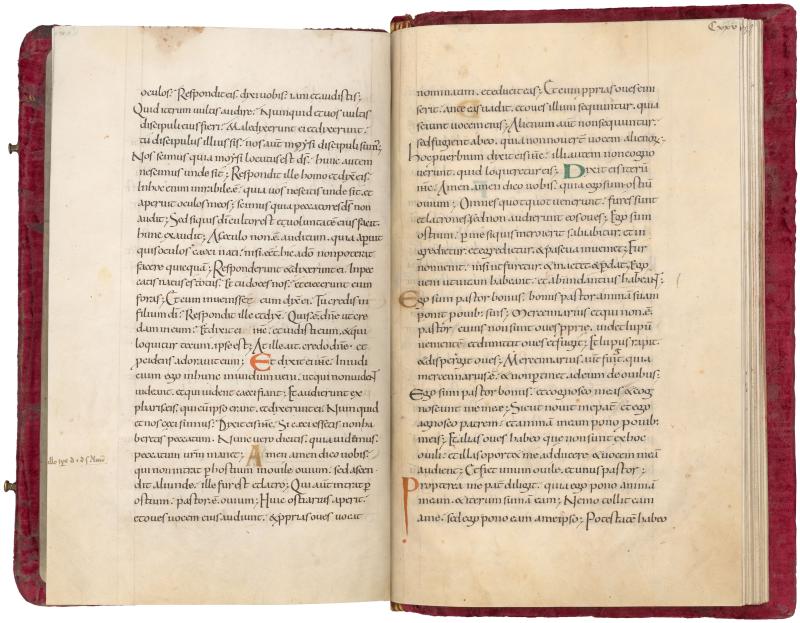 oculos. Respondit eis. dixi uobis. iam et audistis;
Quid iterum uultis audire. Numquid et uos uultis
discipuli eius fieri. Maledixerunt ei et dixerunt.
tu discipulus illius sis. nos aut̄ moysi discipuli sum;
Nos scimus quia moysi locutus est d̄s. hunc autem
nescimus unde sit; Respondit ille homo et dix̄ eis.
In hoc enim mirabile ē. quia uos nescitis unde sit. et
aperuit oculos meos; scimus quia peccatores d̄s non
audit; Sed si quis dī cultor est et uoluntatē eius facit
hunc exaudit; A seculo non ē auditum. quia aperuit
quis oculos caeci nati. nisi eēt hic a dō non poterat
facere quicquā; Responderunt et dixerunt ei. In pec
catis natus es totus. et tu doces nos. et eiecerunt eum
foras; Et cum inuenisset eum dix̄ ei. Tu credis in
filium dī. Respondit ille et dix̄. Quis ē dn̄e ut cre
dam in eum. Et dixit ei ih̄c. et uidisti eum. & qui
loquitur tecum. ipse est; At ille ait. credo dn̄e. et
procidens adorauit eum; Et dixit ei ih̄c. In iudi
cium ego in hunc mundum ueni. ut qui non uident
uideant. et qui uident caeci fiant; Et audierunt ex
phariseis. qui cū ipso erant. et dixerunt ei. Numquid
et nos caeci sumus. Dixit eis ih̄c. Si caeci essetis non ha
beretis peccatum. Nunc uero dicitis. quia uidemus.
peccatum ur̄m manet; Amen amen dico uobis.
qui non intrat ꝑ hostium in ouile ouium. sed ascen
dit aliunde. ille fur est et latro; Qui aut̄ intrat ꝑ
ostium. pastor ē ouium; Huic ostiarius aperit.
et oues uocem eius audiunt. & ꝓprias oues uocat
nominatim. et educit eas; Et cum ꝓprias oues emi
serit. ante eas uadit. et oues illum sequuntur. quia
sciunt uocem eius; Alienum aut̄ non sequuntur.
sed fugient ab eo. quia non nouerūt uocem alienorum.
Hoc prouerbium dixit eis ih̄c. illi autem non cogno
uerunt. quid loqueretur eis; Dixit eis iterū
ih̄c. Amen amen dico uobis. quia ego sum ostiū
ouium; Omnes quotquot uenerunt. fures sunt
et latrones. sed non audierunt eos oues; Ego sum
ostium. per me si quis introierit saluabitur. et in
gredietur. et egredietur. & pascua inueniet; Fur
non uenit. nisi ut furetur. & mactet & ꝑdat. Ego
ueni ut uitam habeant. et abundantius habeant;
Ego sum pastor bonus. bonus pastor animā suam
ponit pro ouib; suis; Mercennarius et qui non ē
pastor. cuius non sunt oues ꝓprie. uidet lupū
uenientē. et dimittit oues et fugit; Et lupus rapit.
& dispergit oues; Mercennarius aut̄ fugit. quia
mercennarius ē. & non ꝑtinet ad eum de ouibus;
Ego sum pastor bonus. et cognosco meas & cog
noscunt me meae; Sicut nouit me pat̄ et ego
agnosco patrem. et animā meam pono pro ouib;
meis; Et alias oues habeo que non sunt ex hoc
ouili. et illas oportet me adducere. & uocem meā
audient; Et fiet unum ouile. et unus pastor;
Propterea me pat̄ diligit. quia ego pono animā
meam. & iterum sumā eam; Nemo tollit eam
a me. sed ego pono eam a me ipso; Potestatē habeo